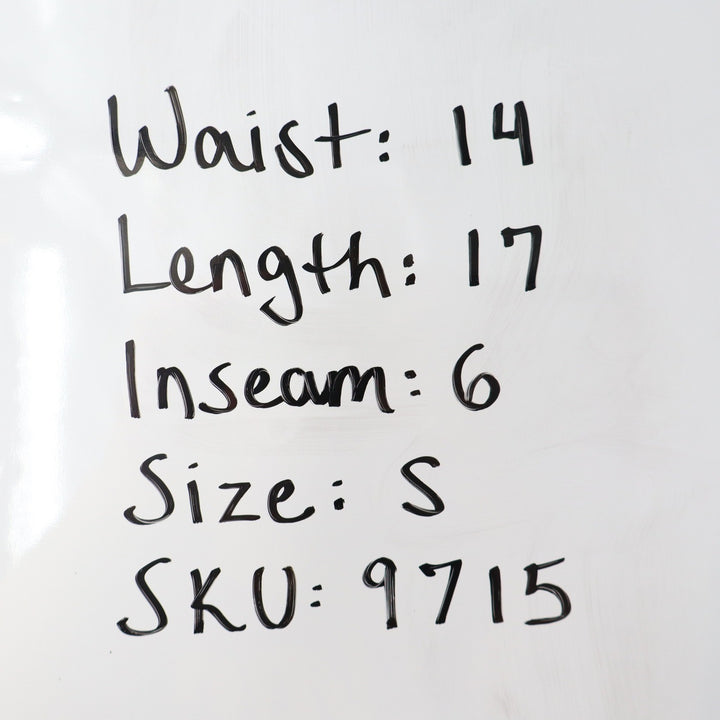 Waist: 14
Length: 17
Inseam: 6
Size: S
SKU: 9715